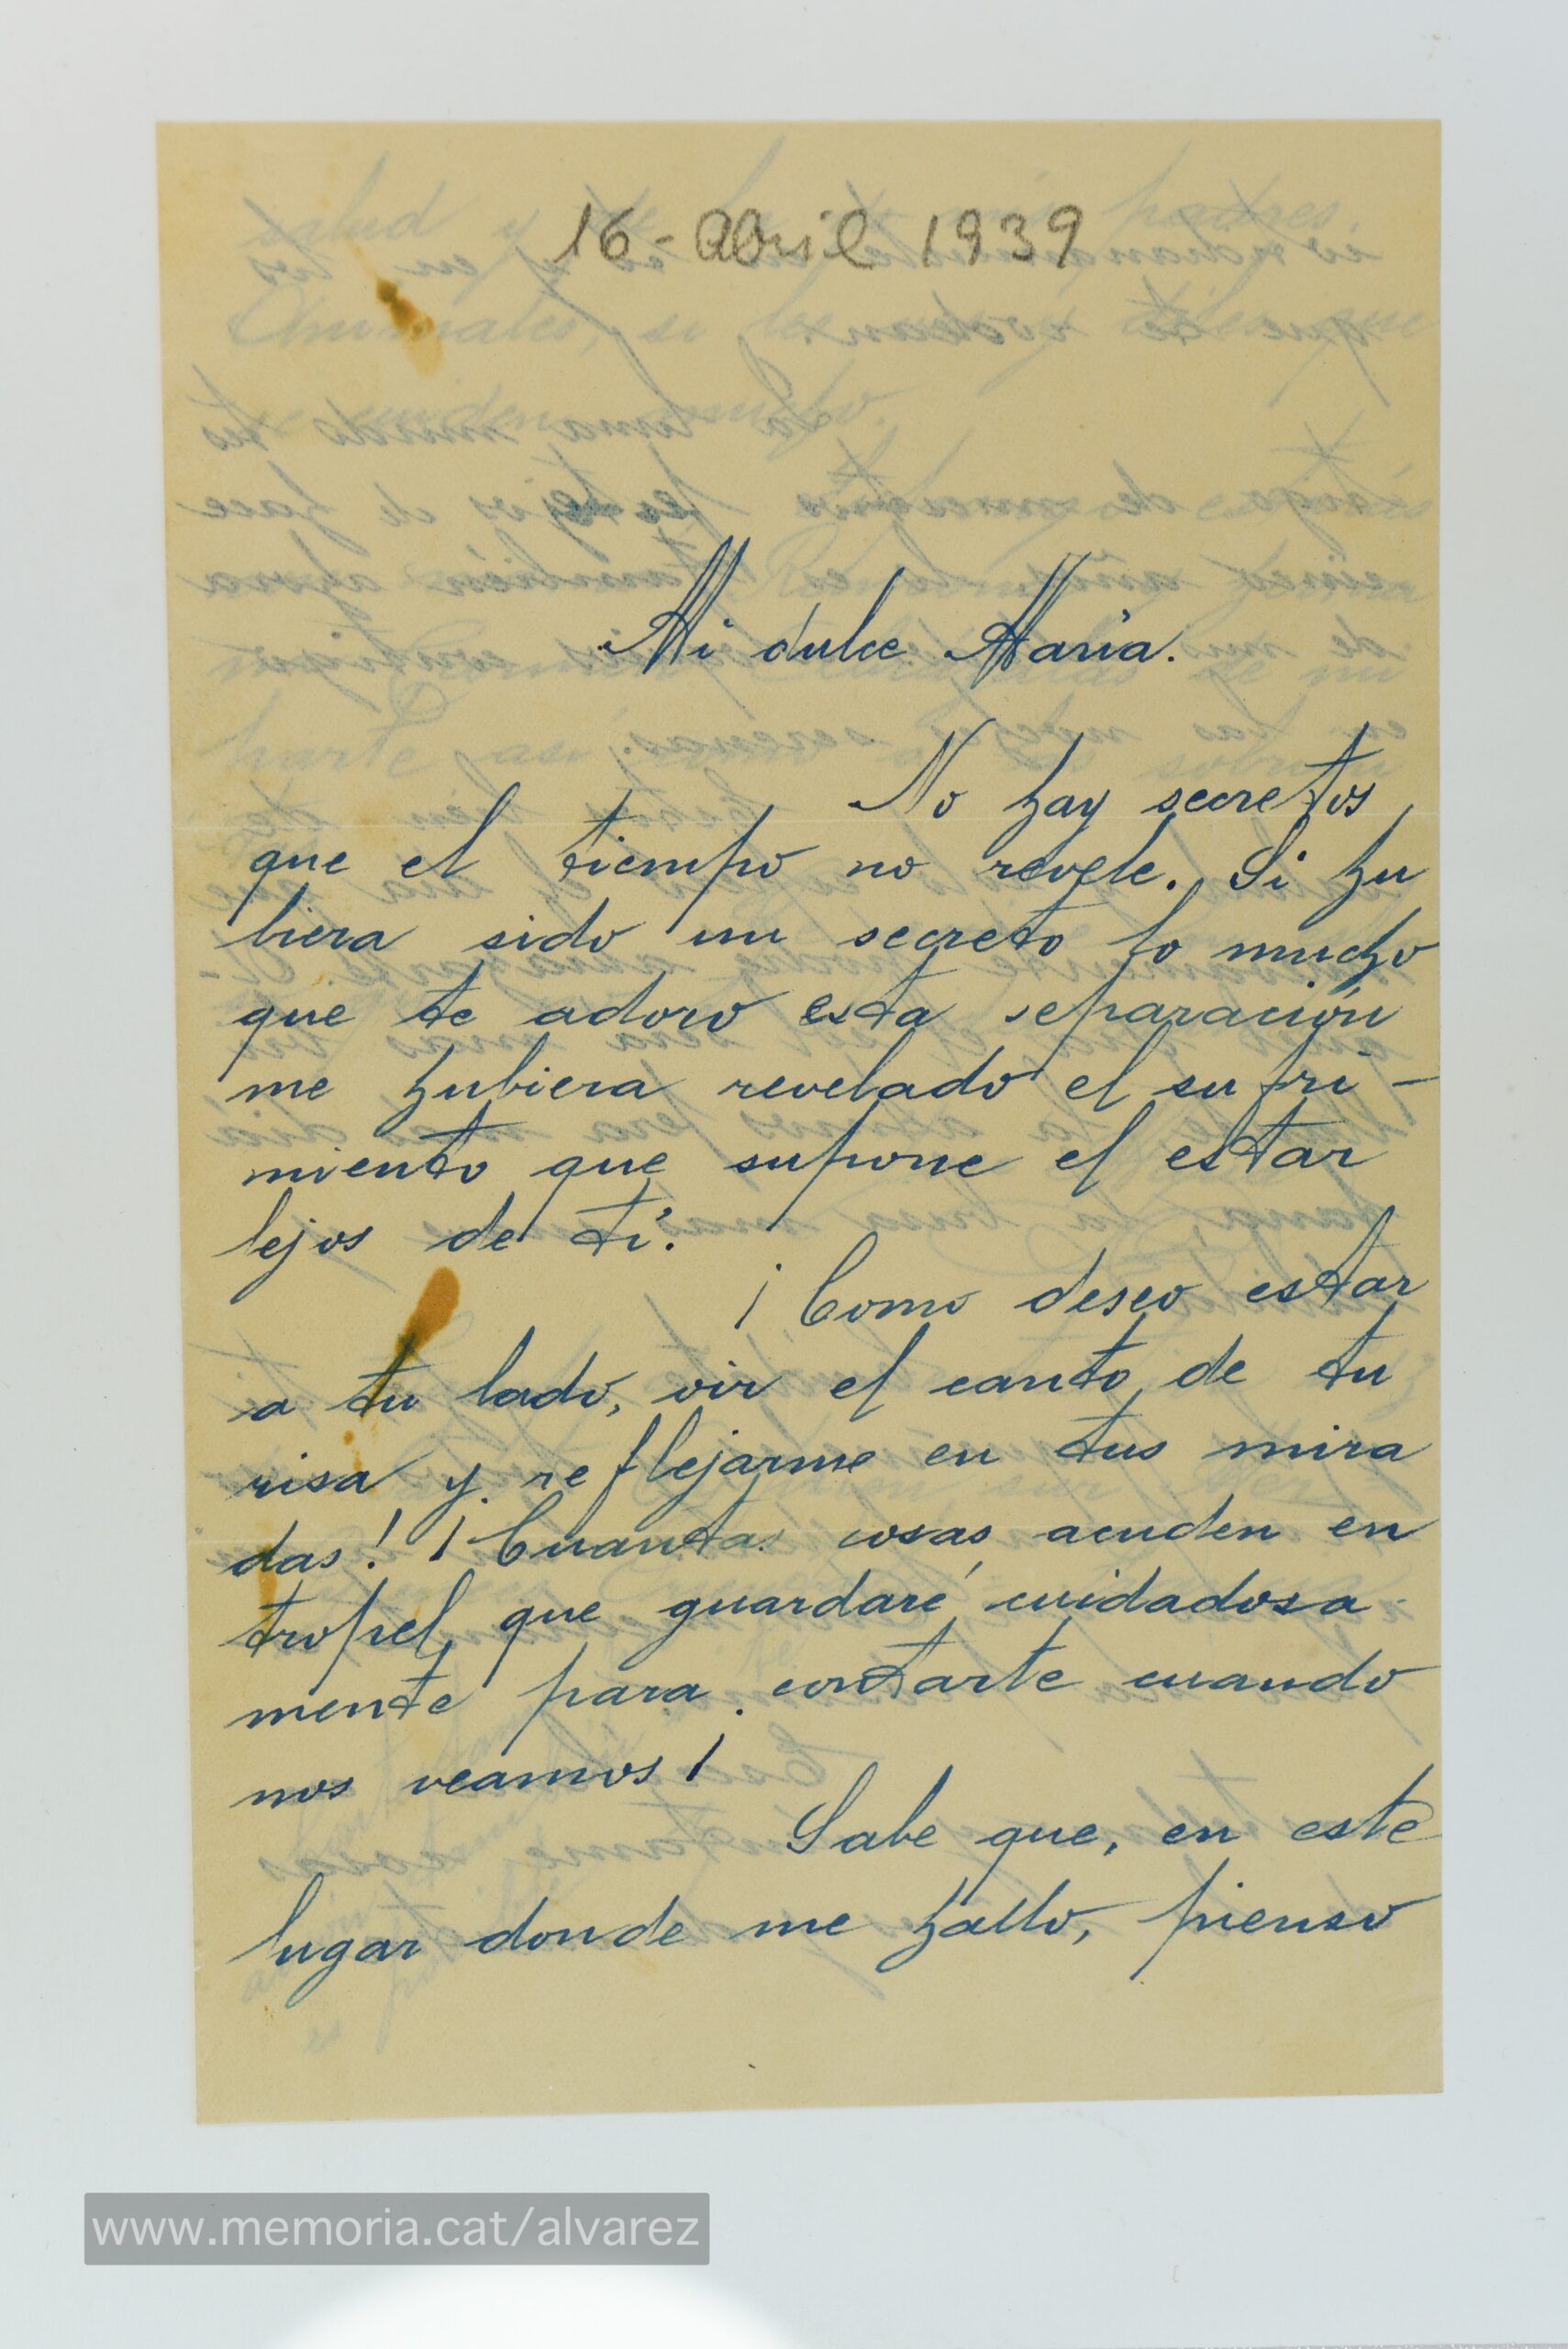 16-Abril 1939
Mi dulce María.
No hay secretos
que el tiempo no revele. Si hu
biera sido un secreto lo mucho
que te adoro esta separación
me hubiera revelado el sufri-
miento que supone el estar
lejos de tí.
¡Como deseo estar
a tu lado, oir el canto de tu
risa y reflejarme en tus mira
das! ¡Cuantas cosas acuden en
tropel, que guardaré cuidadosa-
mente para contarte cuando
nos veamos!
Sabe que, en este
lugar donde me hallo, pienso
www.memoria.cat/alvarez